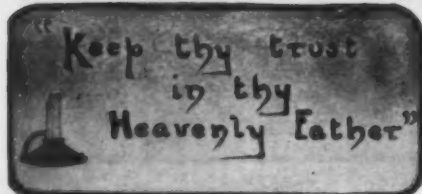 "Keep thy trust
in thy
Heavenly Father"